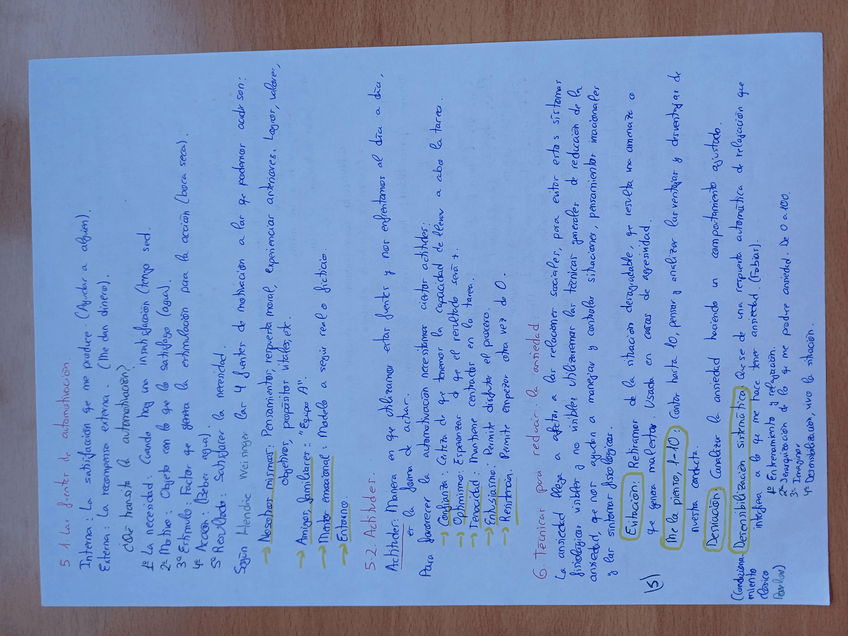 5.1 Las fuentes de automotivación
Interna: La satisfacción que me produce. (Ayudar a alguien).
Externa: La recompensa externa. (Me dan dinero).
¿Qué transita la automotivación?
1º La necesidad: Cuando hay una insatisfacción (tengo sed).
2º Motivo: Objeto con lo que la satisfago (agua).
3º Estímulo: Factor que genera la estimulación para la acción (boca seca).
4º Acción (Beber agua).
5º Resultado: Satisfacer la necesidad.
Según Hendrie Weisinger las 4 fuentes de motivación a las que podemos acudir son:
→ Nosotros mismos: Pensamientos, respuesta moral, experiencias anteriores. Logros, valores,
objetivos, propósitos vitales, etc.
→ Amigos, familiares: "Equipo A".
→ Mentor emocional: Modelo a seguir real o ficticio
→ Entorno
5.2 Actitudes.
Actitudes: Manera en que utilizamos estas fuentes y nos enfrentamos al día a día,
es la forma de actuar.
Para favorecer la automotivación necesitamos ciertas actitudes:
→ Confianza: Certeza de que tenemos la capacidad de llevar a cabo la tarea.
→ Optimismo: Esperanzas de que el resultado será +.
→ Tenacidad: Mantiene centrados en la tarea.
→ Entusiasmo: Permite disfrute el proceso.
→ Resistencia: Permite empezar otra vez de 0.
6. Técnicas para reducir la ansiedad
La ansiedad llega a afectar a las relaciones sociales, para evitar estos síntomas
fisiológicos visibles y no visibles utilizaremos las técnicas generales de reducción de la
ansiedad, que nos ayudan a manejar y controlar situaciones, pensamientos irracionales
y los síntomas fisiológicos.
Evitación: Retirarnos de la situación desagradable, que resulta una amenaza o
que genera malestar. Usada en casos de agresividad.
(5)
Mr. la pienso, 1-10: Contar hasta 10, pensar y analizar las ventajas y desventajas de
nuestra conducta.
Desviación: Canalizar la ansiedad haciendo un comportamiento ajustado.
Desensibilización sistemática: Que se de una respuesta automática de relajación que
integra a lo que me hace tener ansiedad. (Fobias).
(Condiciona-
miento
clásico
Pavlov)
1º Entrenamiento y relajación.
2º Jerarquización de lo que me produce ansiedad. De 0 a 100.
3º Imaginar.
4º Desensibilización, vivo la situación.